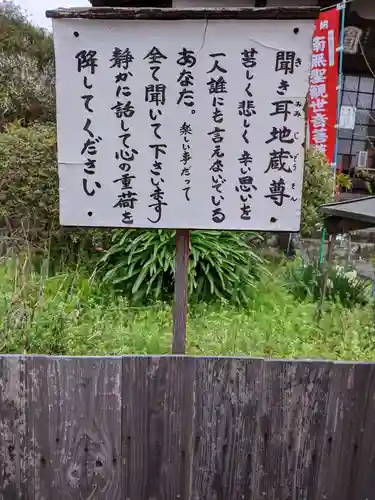 聞き耳地蔵尊
きみみじぞうそん
苦しく悲しく 辛い思いを
一人誰にも言えないでいる
あなた。楽しい事だって
全て聞いて下さいます
静かに話して心の重荷を
降してください。
納
南無聖観世音菩薩